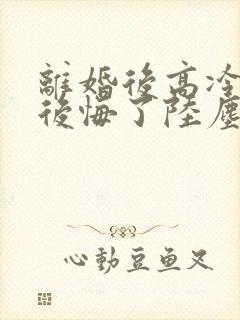 離婚後高冷
後悔了陸塵
心動豆魚又